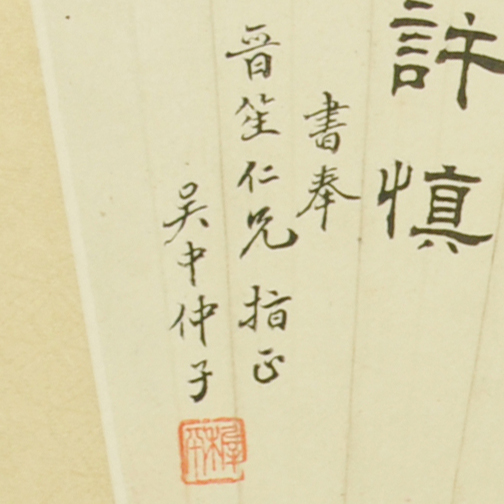 許慎
書奉
晉笙仁兄指正
吴中仲子